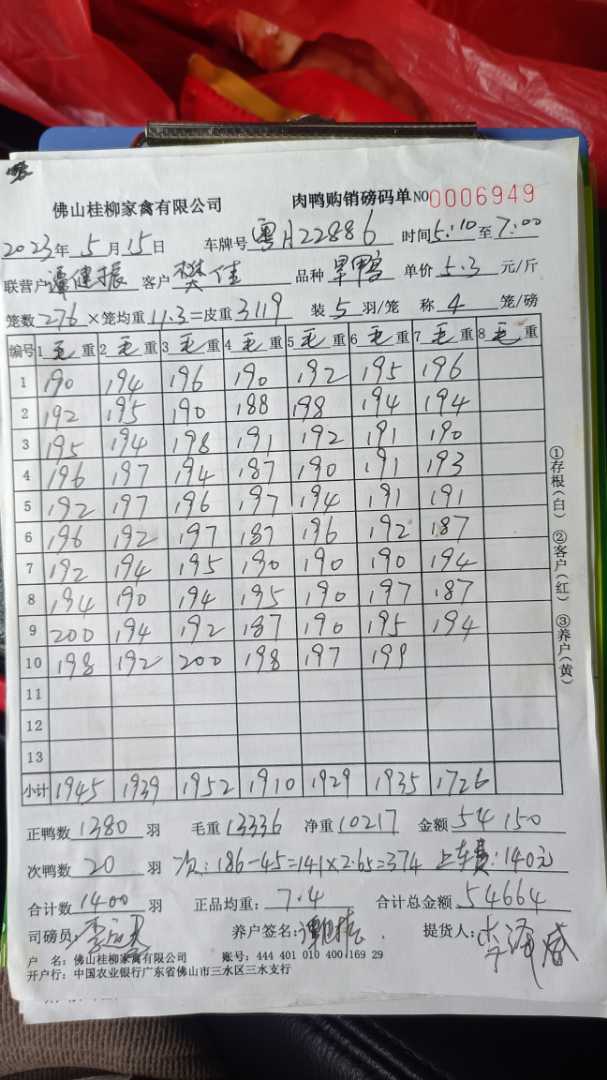 佛山桂柳家禽有限公司 肉鸭购销磅码单 NO 0006949
2023年5月15日 车牌号 粤A22886 时间5:10至7:00
联营户 谭健振 客户 樊佳 品种 旱鸭 单价 5.3 元/斤
笼数 276 ×笼均重 11.3=皮重 3119 装 5 羽/笼 称 4 笼/磅
编号 1 毛重 2 毛重 3 毛重 4 毛重 5 毛重 6 毛重 7 毛重 8 毛重
1 190 194 196 190 192 195 196
2 192 195 190 188 198 194 194
3 195 194 198 191 192 191 190
4 196 197 194 187 190 191 193
5 192 197 196 197 194 191 191
6 196 192 197 187 196 192 187
7 192 194 195 190 190 190 194
8 194 190 194 195 190 197 187
9 200 194 192 187 190 195 194
10 198 192 200 198 197 199
11
12
13
小计 1945 1939 1952 1910 1929 1935 1726
正鸭数 1380 羽 毛重 13336 净重 10217 金额 54150
次鸭数 20 羽 次:186-45=141×2.65=374 上车费:140元
合计数 1400 羽 正品均重: 7.4 合计总金额 54664
司磅员: 养户签名: 谭健振 提货人: 李海威
户 名:佛山桂柳家禽有限公司 账号:444 401 010 400 169 29
开户行:中国农业银行广东省佛山市三水区三水支行
①存根(白) ②客户(红) ③养户(黄)